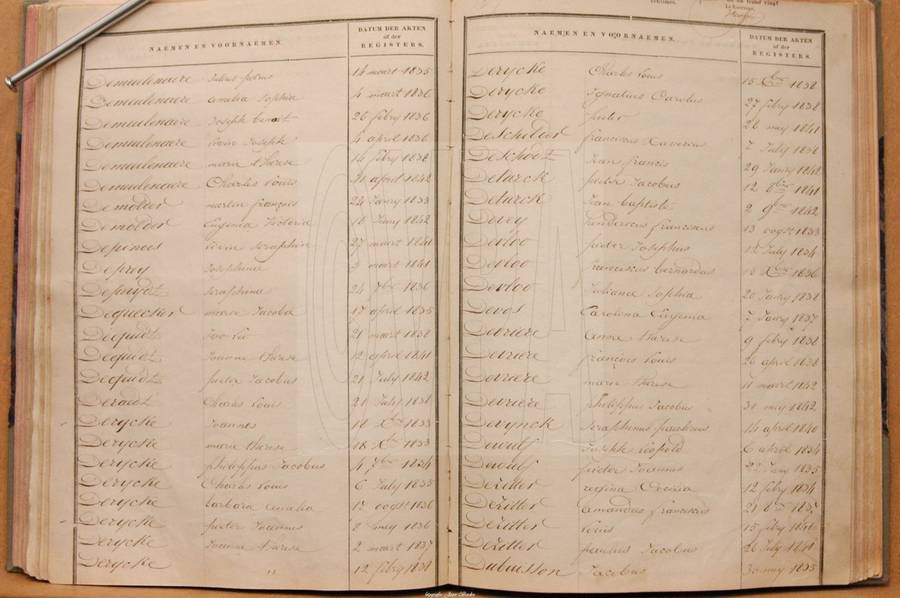 NAEMEN EN VOORNAEMEN.
DATUM DER AKTEN
of der
REGISTERS.
Demeulenaere Julius petrus 14 maart 1835
Demeulenaere amelia Sophia 4 maart 1836
Demeulenaere Joseph benoit 26 febry 1836
Demeulenaere Joseph 4 april 1836
Demeulenaere marie therese 14 febry 1838
Demeulenaere Charles Louis april 1842
Demolder martin françois 24 Janry 1833
Demolder Eugenia Victoria 18 Juny 1842
Depinois Seraphin 27 maart 1841
Deprey Josephine 3 maart 1841
Depuydt Seraphinus 24 7bre 1836
Dequecker marie Jacoba 17 april 1835
Dequidt Ivo 21 maart 1838
Dequidt Joanne therese 12 april 1841
Dequidt pieter Jacobus 21 July 1842
Deraedt Charles Louis 21 July 1838
Derycke Joannes 10 Xbre 1833
Derycke marie therese Xbre 1833
Derycke philippus Jacobus 4 7bre 1834
Derycke Charles Louis 6 July 1835
Derycke barbara amelia 17 oogst 1836
Derycke pieter Joannes 2 mey 1836
Derycke Joanne therese 2 maart 1837
Derycke 12 febry 1838
NAEMEN EN VOORNAEMEN.
DATUM DER AKTEN
of der
REGISTERS.
Derycke Charles Louis 15 1838
Derycke Ignatius Carolus 27 febry 1838
Derycke pieter 28 mey 1841
Deschilder franciscus Xaverius 7 July 1838
Deschoot Jean francis 29 Janry 1842
Deturck pieter Jacobus 12 8bre 1841
Deturck Jean baptiste 2 9bre 1842
Devey franciscus 13 oogst 1833
Devloo pieter Josephus 12 July 1834
Devloo franciscus bernardus 16 Xbre 1836
Devloo Juliana Sophia 20 Janry 1838
Devos Carolona Eugenia 7 Janry 1837
Devriere anne therese 9 febry 1838
Devriere françois Louis 26 april 1838
Devriere marie therese 11 maart 1842
Devriere philippus Jacobus 31 mey 1842
Devynck Seraphinus 14 april 1840
Dewulf Joseph Leopold 6 april 1834
Dewulf pieter Joannes 22 Jany 1835
Dezitter regina Cecilia 12 febry 1834
Dezitter amandus franciscus 21 8bre 1837
Dezitter Louis 15 feby 1841
Dezitter paulus Jacobus 26 July 1841
Dubuisson Jacobus 30 mey 1835